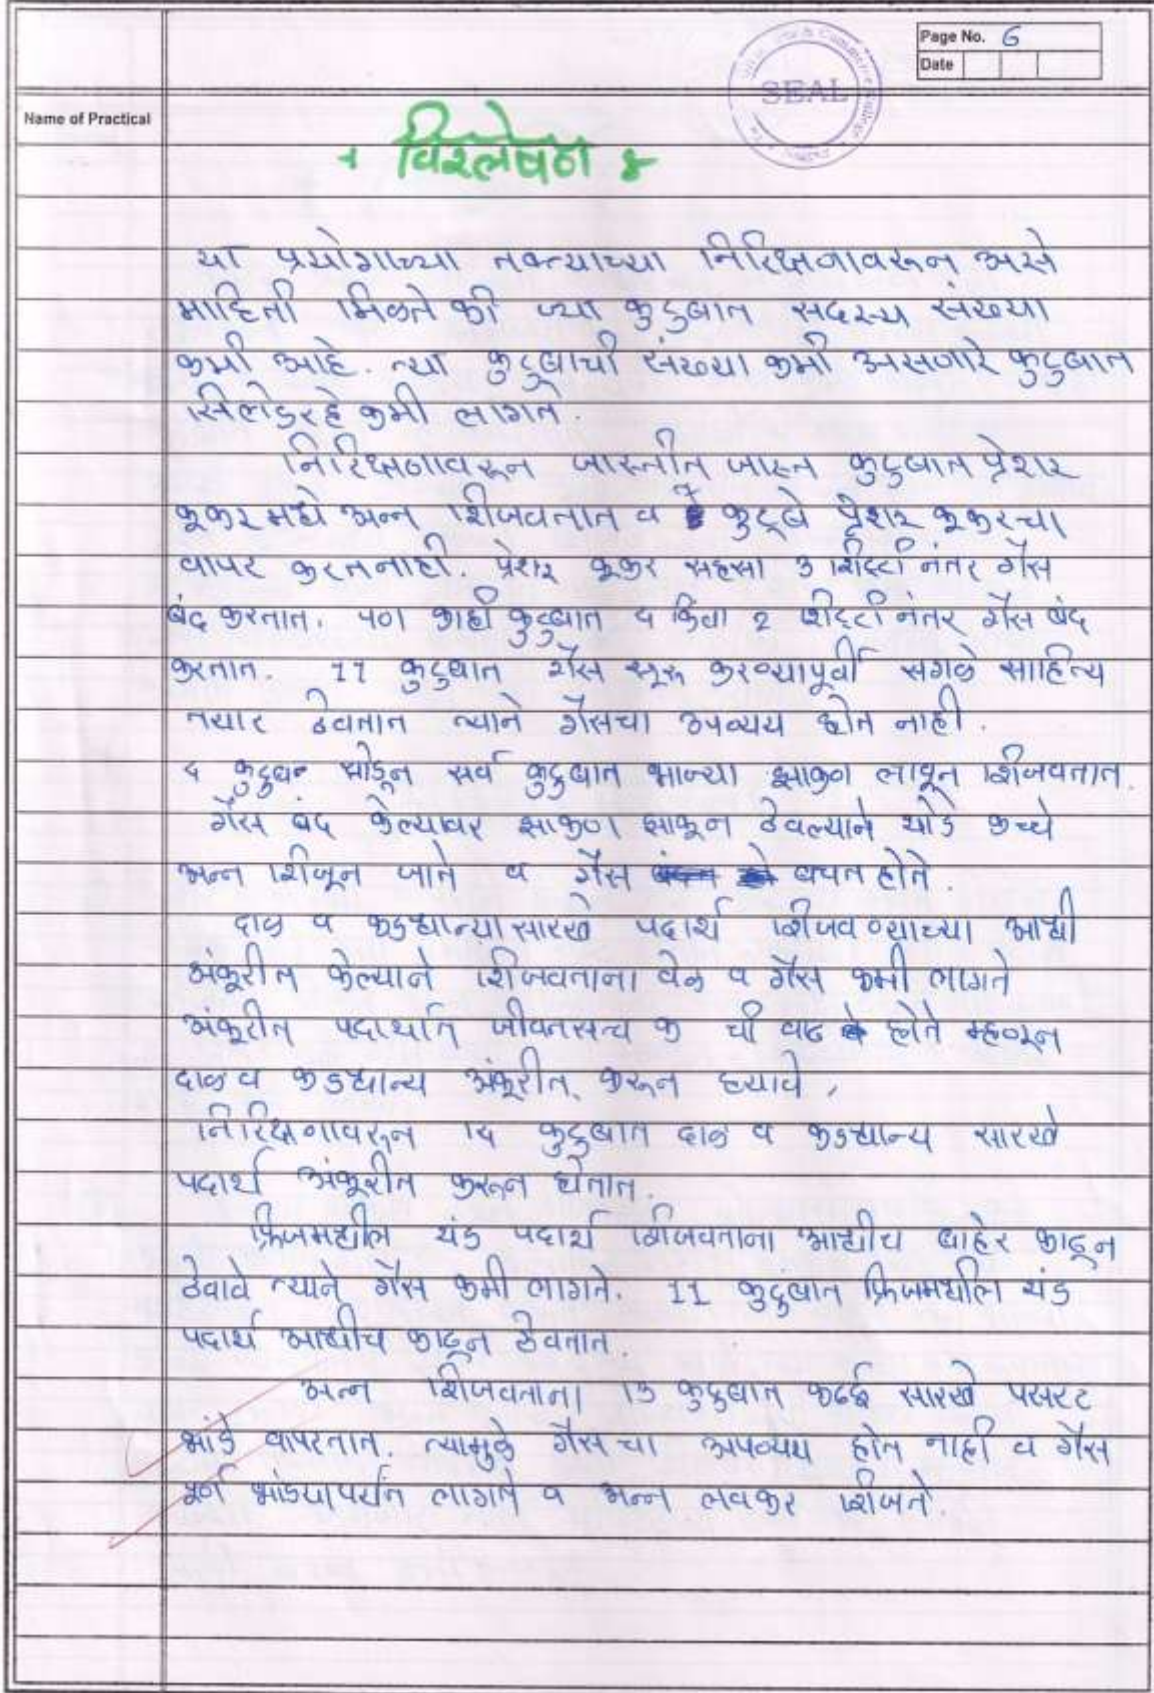 Page No. 6
Date
SEAL
Name of Practical
विश्लेषण
या प्रयोगाच्या तक्त्याच्या निरिक्षणावरून असे
माहिती मिळते की ज्या कुटुबात सदस्य संख्या
कमी आहे. त्या कुटुबाची संख्या कमी असणारे कुटुबात
सिलेंडर हे कमी लागते.
निरिक्षणावरून जास्तीत जास्त कुटुबात प्रेशर
कूकर मधे अन्न शिजवतात व कुटूबे प्रेशर कूकरचा
वापर करत नाही. प्रेशर कूकर सहसा 3 शिट्टी नंतर गॅस
बंद करतात. पण काही कुटुबात ५ किंवा 2 शिट्टी नंतर गॅस बंद
करतात. 11 कुटुबात गॅस सूरू करण्यापूर्वी सगळे साहित्य
तयार ठेवतात त्याने गॅसचा अपव्यय होत नाही.
कुटुब सोडून सर्व कुटुबात भाज्या झाकण लावून शिजवतात.
गॅस बंद केल्यावर झाकण झाकून ठेवल्याने थोडे कच्चे
अन्न शिजून जाते व गॅस बचत होते.
दाळ व कडधान्या सारखे पदार्थ शिजवण्याच्या आधी
अंकूरीत केल्याने शिजवताना वेळ व गॅस कमी लागते
अंकूरीत पदार्थात जीवनसत्व क ची वाढ होते म्हणून
दाळ व कडधान्य अंकूरीत करून घ्यावे,
निरिक्षणावरून 14 कुटुबात दाळ व कडधान्य सारखे
पदार्थ अंकूरीत करून घेतात.
फ्रिजमधील थंड पदार्थ शिजवताना आधीच बाहेर काढून
ठेवावे त्याने गॅस कमी लागते. 11 कुटुंबात फ्रिजमधील थंड
पदार्थ आधीच काढून ठेवतात.
अन्न शिजवताना 13 कुटुबात कढई सारखे पसरट
भांडे वापरतात. त्यामुळे गॅस चा अपव्यय होत नाही व गॅस
पूर्ण भांड्यापर्यंत लागते व अन्न लवकर शिजते.